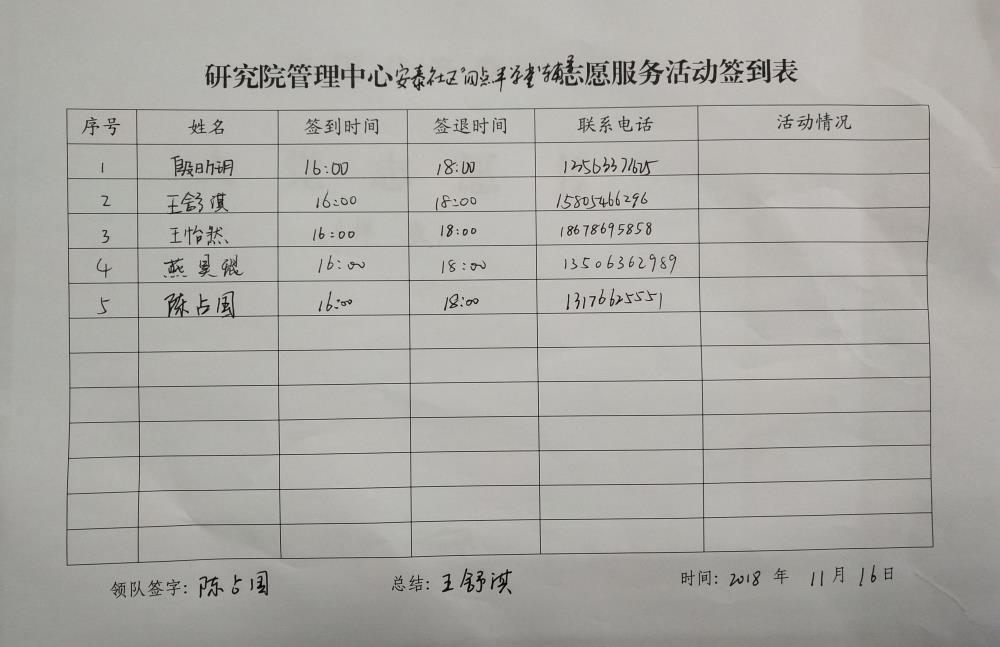 研究院管理中心安泰社区"四点半学堂"辅导志愿服务活动签到表
序号 姓名 签到时间 签退时间 联系电话 活动情况
1 16:00 18:00
2 王舒淇 16:00 18:00 15805466296
3 王怡然 16:00 18:00 18678695858
4 燕昊 16:00 18:00 13506362989
5 陈占国 16:00 18:00 13176625551
领队签字: 陈占国 总结: 王舒淇 时间: 2018 年 11 月 16 日